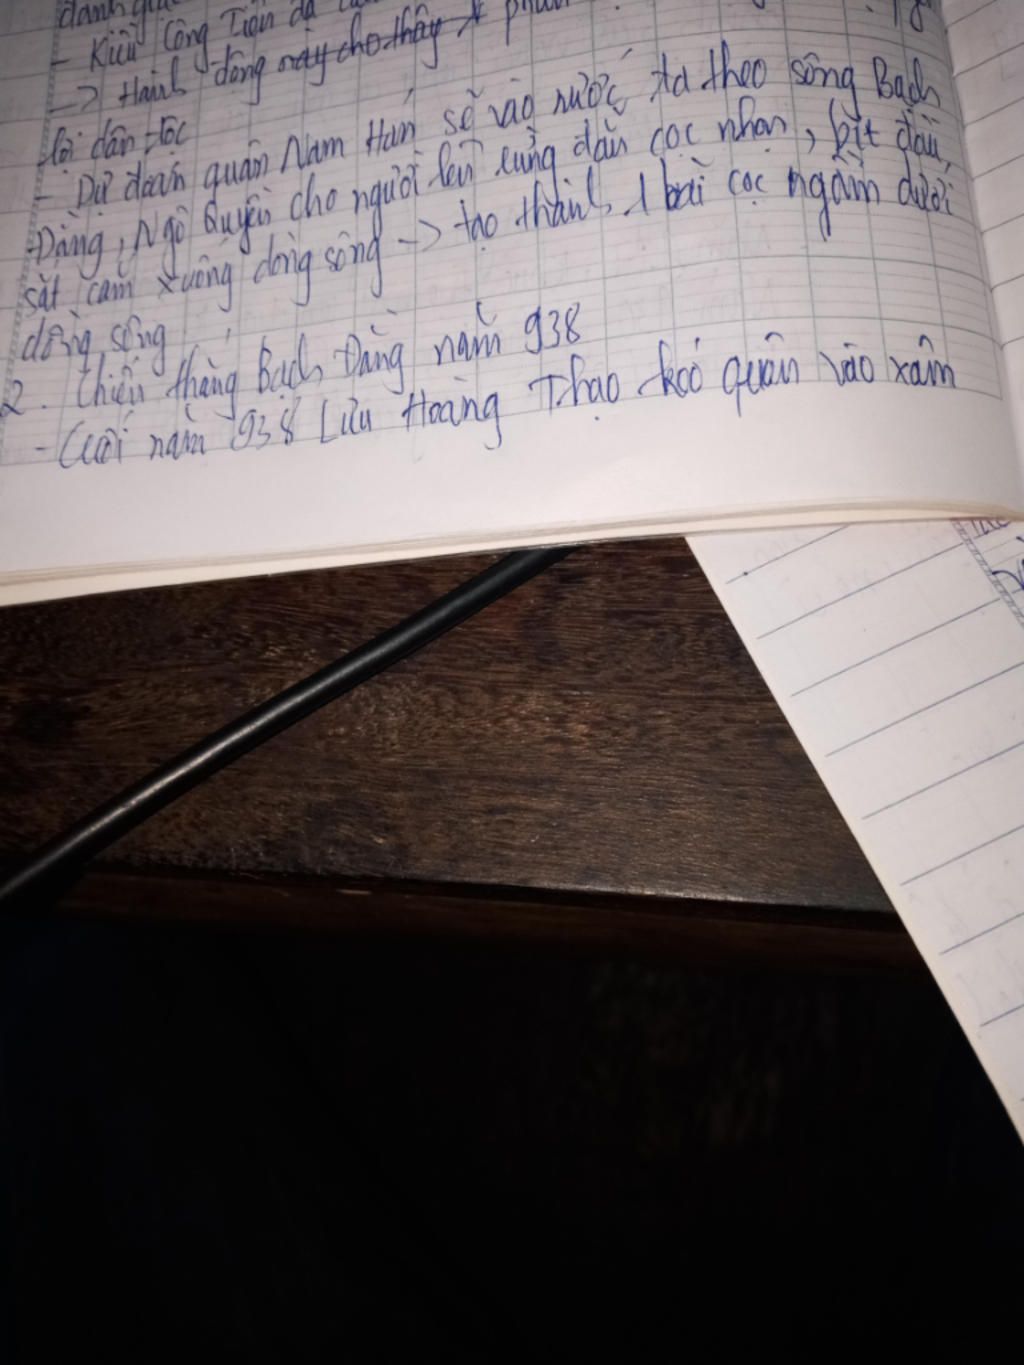 - Kiều Công Tiễn đã
-> Hành động này cho thấy
lội dân tộc
- Dự đoán quân Nam Hán sẽ vào nước ta theo sông Bạch
Đằng, Ngô Quyền cho người lên rừng đẵn cọc nhọn, bịt đầu
sắt cắm xuống dòng sông -> tạo thành 1 bãi cọc ngầm dưới
dòng sông
2. Chiến thắng Bạch Đằng năm 938
- Cuối năm 938 Lưu Hoằng Thao kéo quân vào xâm